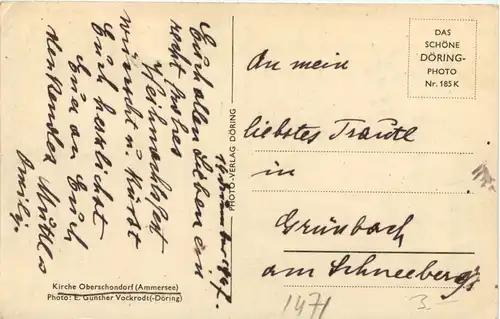 Euch allen Lieben ein
recht frohes
Weihnachtsfest
wünscht u. küßt
Euch herzlichst
Eure an Euch
denkendes Muttl
DAS
SCHÖNE
DÖRING-
PHOTO
Nr. 185 K
An mein
liebstes Trautl
in
Grünbach
am Schneeberg
PHOTO-VERLAG DÖRING
Kirche Oberschondorf (Ammersee)
Photo: E. Günther Vockrodt(-Döring)
1471
3